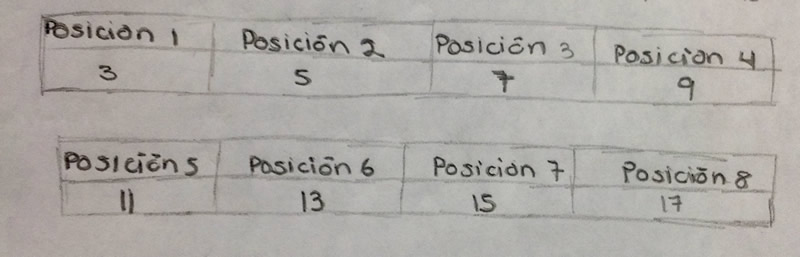 Posición 1 Posición 2 Posición 3 Posición 4
3 5 7 9
Posición 5 Posición 6 Posición 7 Posición 8
11 13 15 17